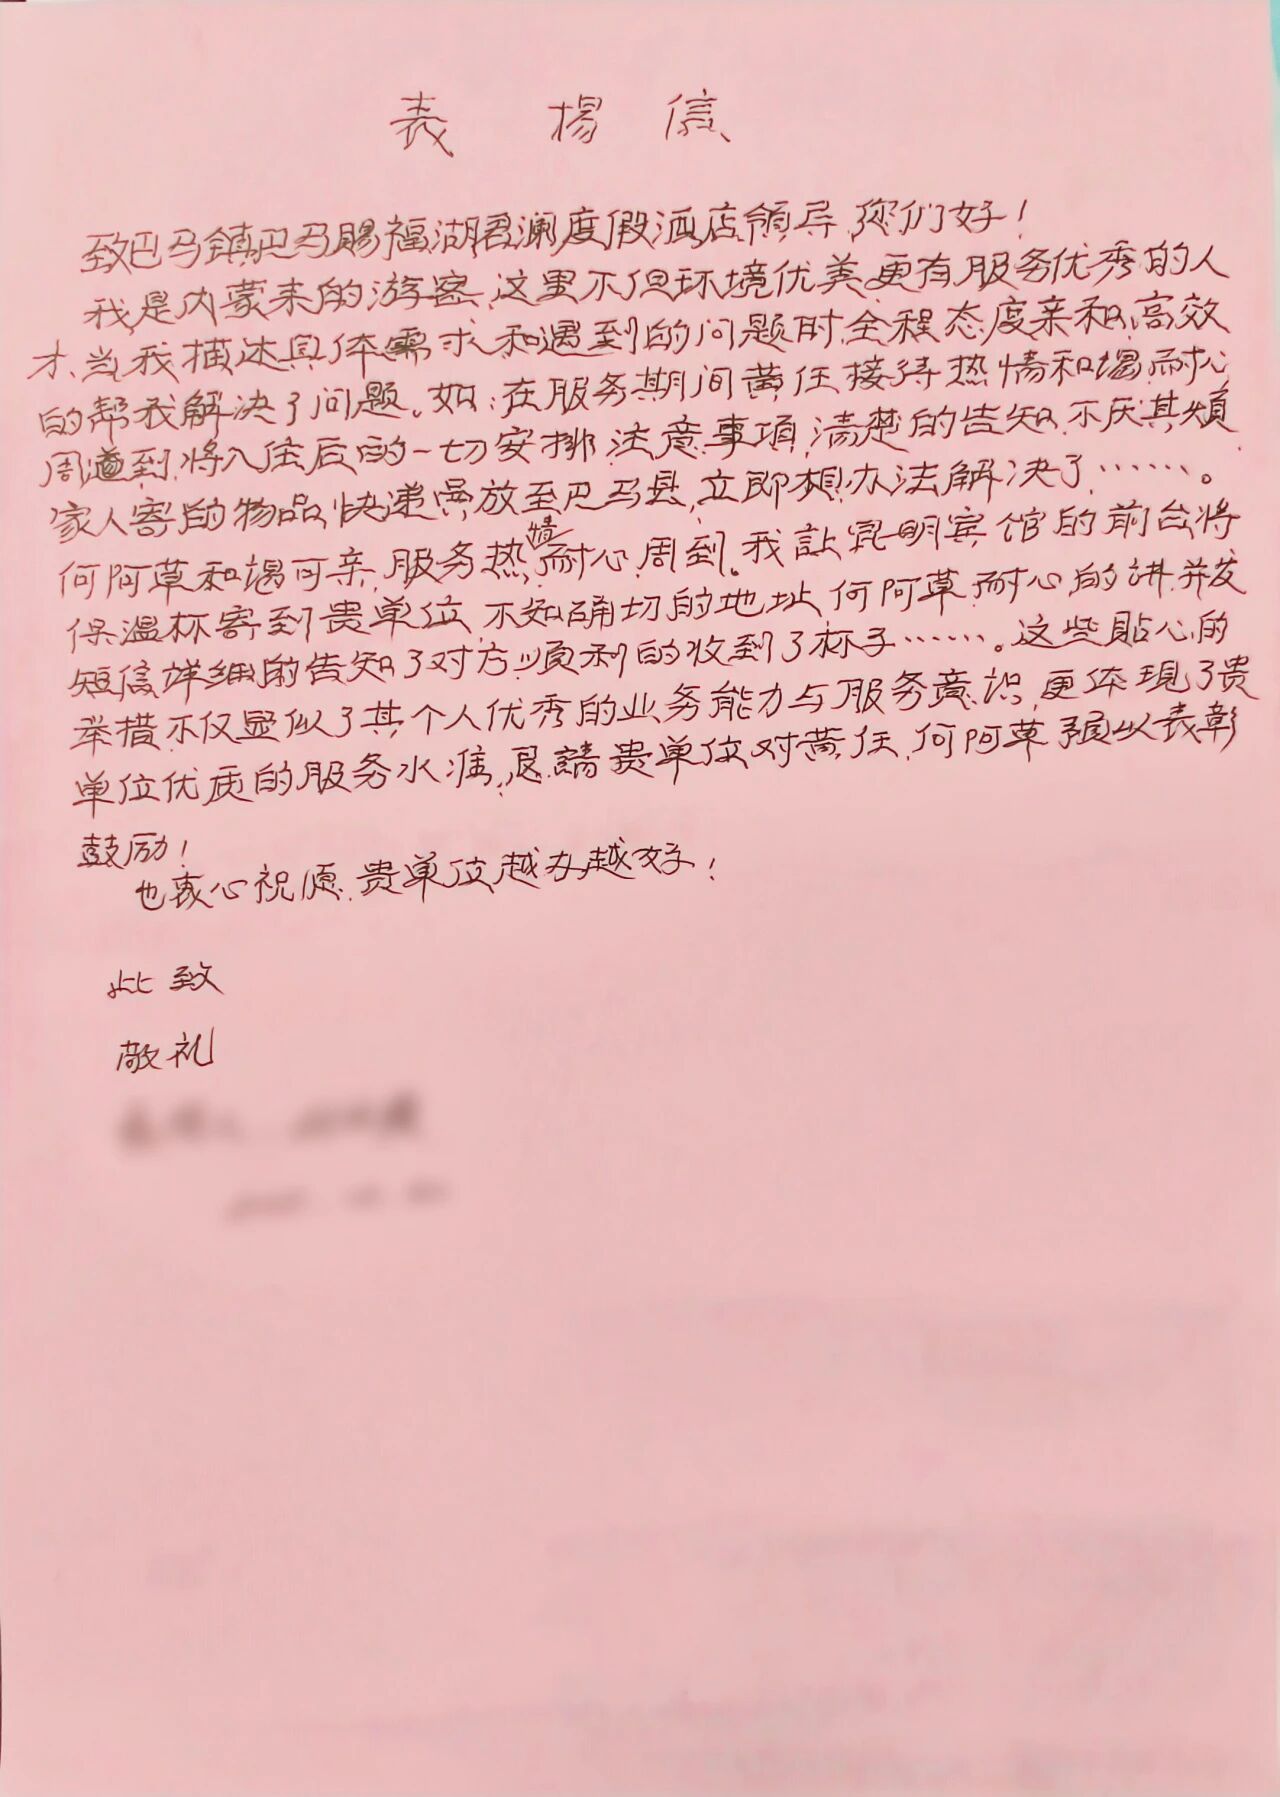 表扬信
致巴马镇巴马赐福湖君澜度假酒店領导,您们好！
我是内蒙来的游客,这里不但环境优美,更有服务优秀的人
才,当我描述具体需求和遇到的问题时,全程态度亲和,高效
的帮我解决了问题。如:在服务期间黄任接待热情和蔼,耐心
周道到,将入住后的一切安排,注意事項,清楚的告知,不厌其煩,
家人寄的物品,快递员放至巴马县,立即想办法解决了……。
何阿草和蔼可亲,服务热情耐心,周到。我让昆明宾馆的前台将
保温杯寄到贵单位,不知确切的地址,何阿草,耐心的讲,并发
短信详细的告知了对方,顺利的收到了杯子……。这些貼心的
举措不仅显似了其个人优秀的业务能力与服务意识,更体現了贵
单位优质的服务水准,恳請贵单位对黄任,何阿草予以表彰
鼓励！
也衷心祝愿,贵单位越办越好！
此致
敬礼